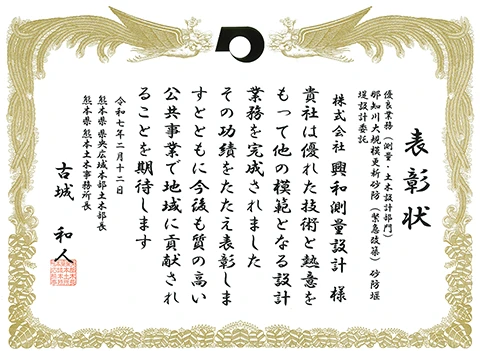 表彰状
優良業務(測量・土木設計部門)
那知川大規模更新砂防(緊急改築)砂防堰
堤設計委託
株式会社 興和測量設計 様
貴社は優れた技術と熱意を
もって他の模範となる設計
業務を完成されました
その功績をたたえ表彰しま
すとともに今後も質の高い
公共事業で地域に貢献され
ることを期待します
令和七年二月十二日
熊本県 県央広域本部土木部長
熊本県 熊本土木事務所長
古城 和人